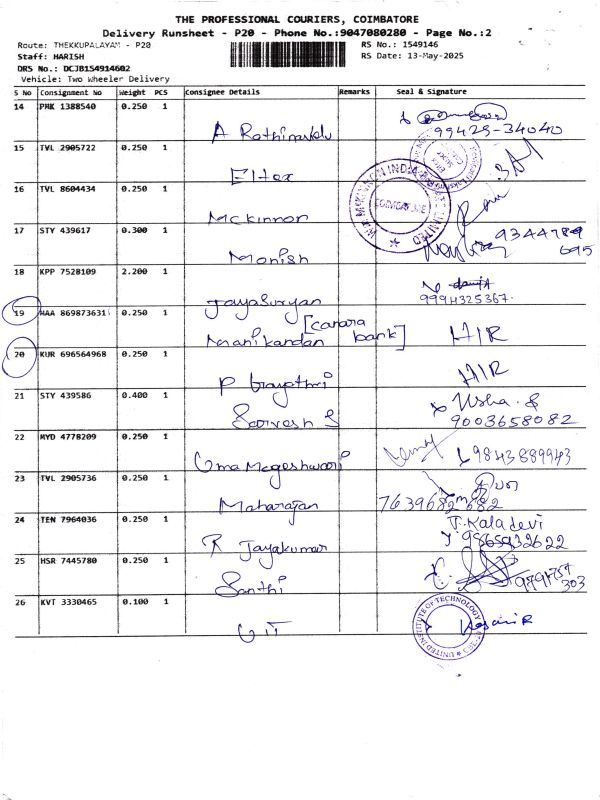 THE PROFESSIONAL COURIERS, COIMBATORE
Delivery Runsheet - P20 - Phone No.:9047080280 - Page No.:2
Route: THEKKUPALAYAM - P20
RS No.: 1549146
Staff: HARISH
RS Date: 13-May-2025
DRS No.: DCJB154914602
Vehicle: Two Wheeler Delivery
S No Consignment No Weight PCS Consignee Details Remarks Seal & Signature
14 PMK 1388540 0.250 1
99425-34040
15 TVL 2905722 0.250 1
Eltex
16 TVL 8604434 0.250 1
COIMBATORE
Mckinnon
17 STY 439617 0.300 1
9344789
695
Monish
18 KPP 7528109 2.200 1
Jayasuryan
9994325367
19 MAA 869873631 0.250 1
Manikandan [canara bank] HIR
20 KUR 696564968 0.250 1
HIR
21 STY 439586 0.400 1
Usha. S
Sarvesh S
9003658082
22 MYD 4778209 0.250 1
9843889943
Uma Mageshwari
23 TVL 2905736 0.250 1
Maharajan
7639682682
24 TEN 7964036 0.250 1
T. Kaladevi
R Jayakumar
25 HSR 7445780 0.250 1
Santhi
303
26 KVT 3330465 0.100 1
UNITED INSTITUTE OF TECHNOLOGY
UIT